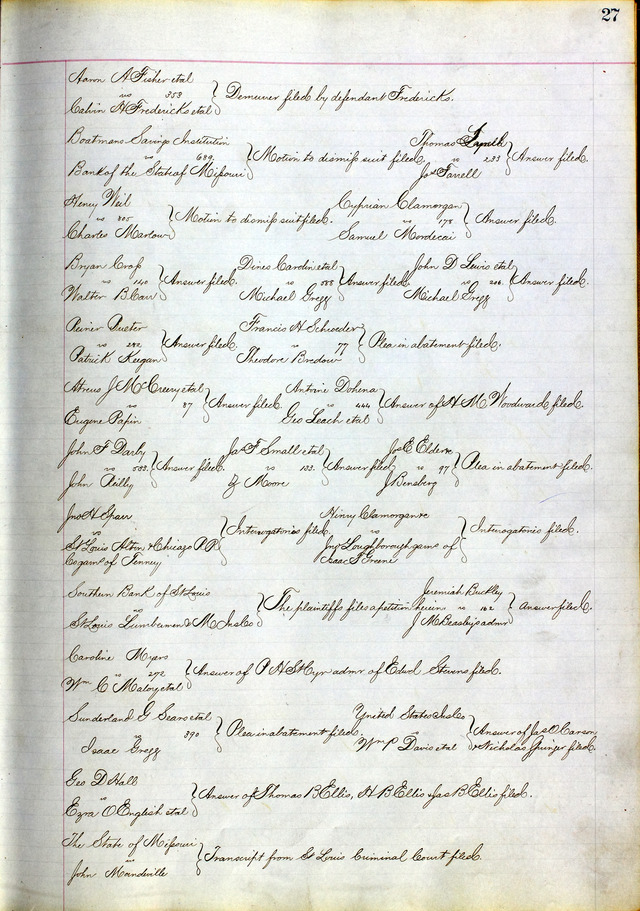 27
Aaron A Fisher etal
vs 353 Demurrer filed by defendant Fredericks.
Calvin H Fredericks etal
Boatmans Savings Institution
vs 689 Motion to dismiss suit filed.
Bank of the State of Missouri
Thomas
vs 233 Answer filed.
Jas Farrell
Henry Weil
vs 305 Motion to dismiss suit filed.
Charles Marlow
Cyprian Clamorgan
vs 178 Answer filed.
Samuel Mordecai
Bryan Cross
vs 1140 Answer filed.
Walter B Carr
Dines Cardin etal
vs 588 Answer filed.
Michael Gregg
John D Lewis etal
vs 206 Answer filed.
Michael Gregg
vs 242 Answer filed.
Patrick Keegan
Francis H Schroeder
vs 77 Plea in abatement filed.
Theodore Bredow
J McCreery etal
vs 87 Answer filed.
Eugene Papin
Antoine Dohena
vs 444 Answer of H M Woodward filed.
Geo Leach etal
John F Darby
vs 503 Answer filed.
John Reilly
Jas F Small etal
vs 133 Answer filed.
Moore
Jos E Elder
vs 97 Plea in abatement filed.
J Bensberg
Jno H Speer
vs Interogatories filed.
St Louis Alton & Chicago R R
Co garns of Tenney
Henry Clamorgan
vs Interogatories filed.
Jno Loughborough garns of
Isaac T Greene
Southern Bank of St Louis
vs The plaintiffs files a petition herein
St Louis Lumbermen & M Ins Co
Jeremiah Buckley
vs 162 Answer filed.
J M Beasley's admr
Caroline Myers
vs 272 Answer of P H St Cyr admr. of Edwd Stevens filed.
Wm C Maloy etal
Sunderland G Sears etal
vs 390 Plea in abatement filed.
Isaac Gregg
United States Ins Co
vs Answer of Jas O Carson
Wm P Davis etal & Nicholas filed.
Geo D Hall
vs Answer of Thomas B Ellis, H B Ellis & Jas B Ellis filed.
Ezra O English etal
The State of Missouri
vs Transcript from St Louis Criminal Court filed.
John Mandeville